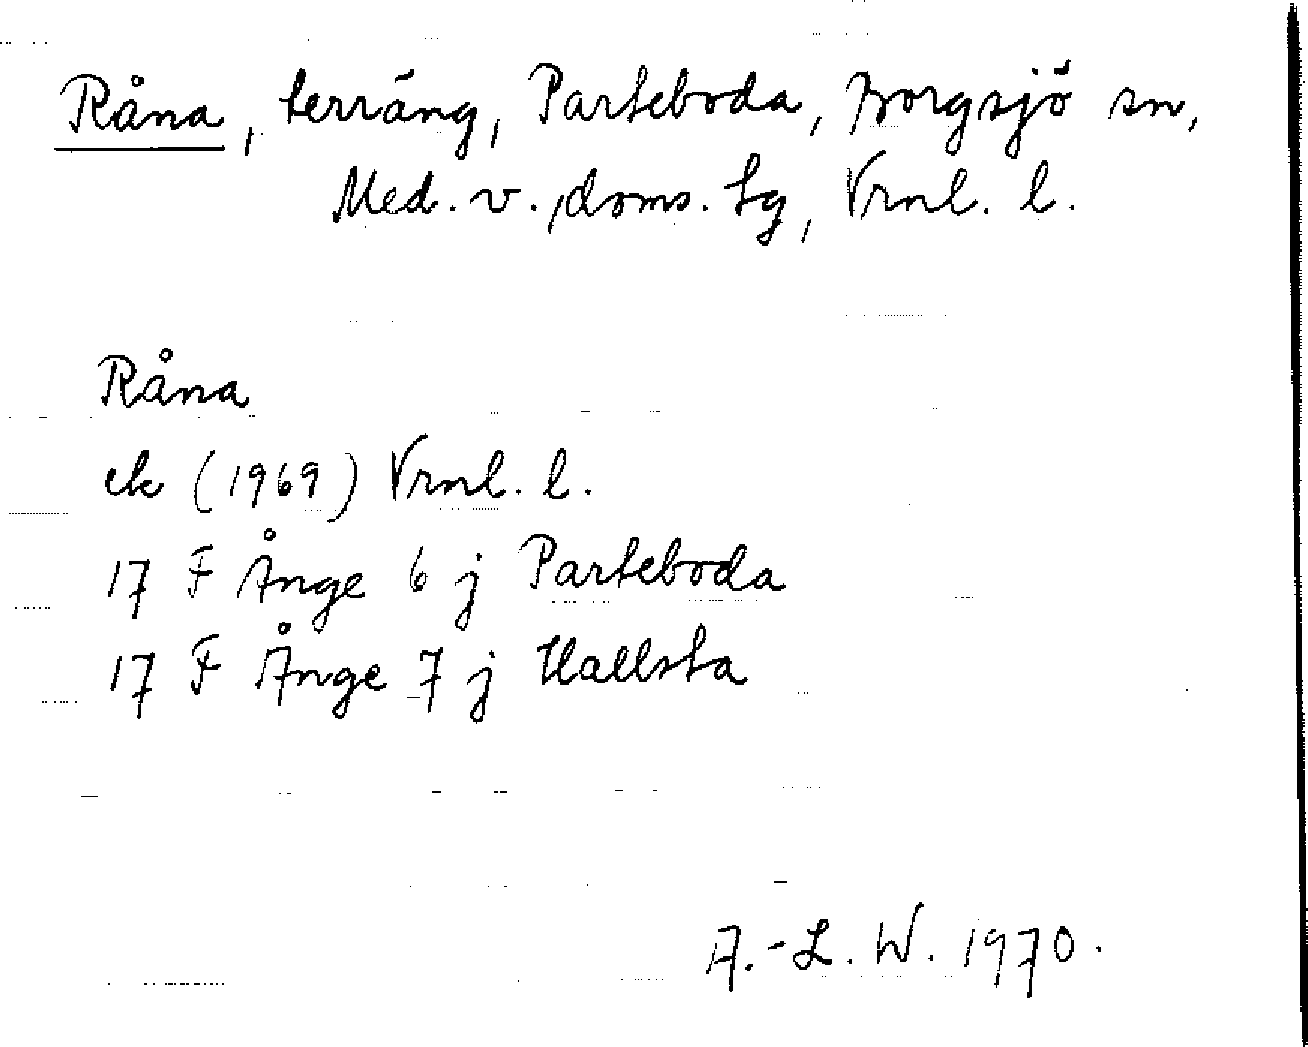 Råna, terräng, Parteboda, Borgsjö sn,
Med. v., doms. tg, Vrnl. l.
Råna
ek (1969) Vrnl. l.
17 F Ånge 6 j Parteboda
17 F Ånge 7 j Hallsta
A.-L. W. 1970.